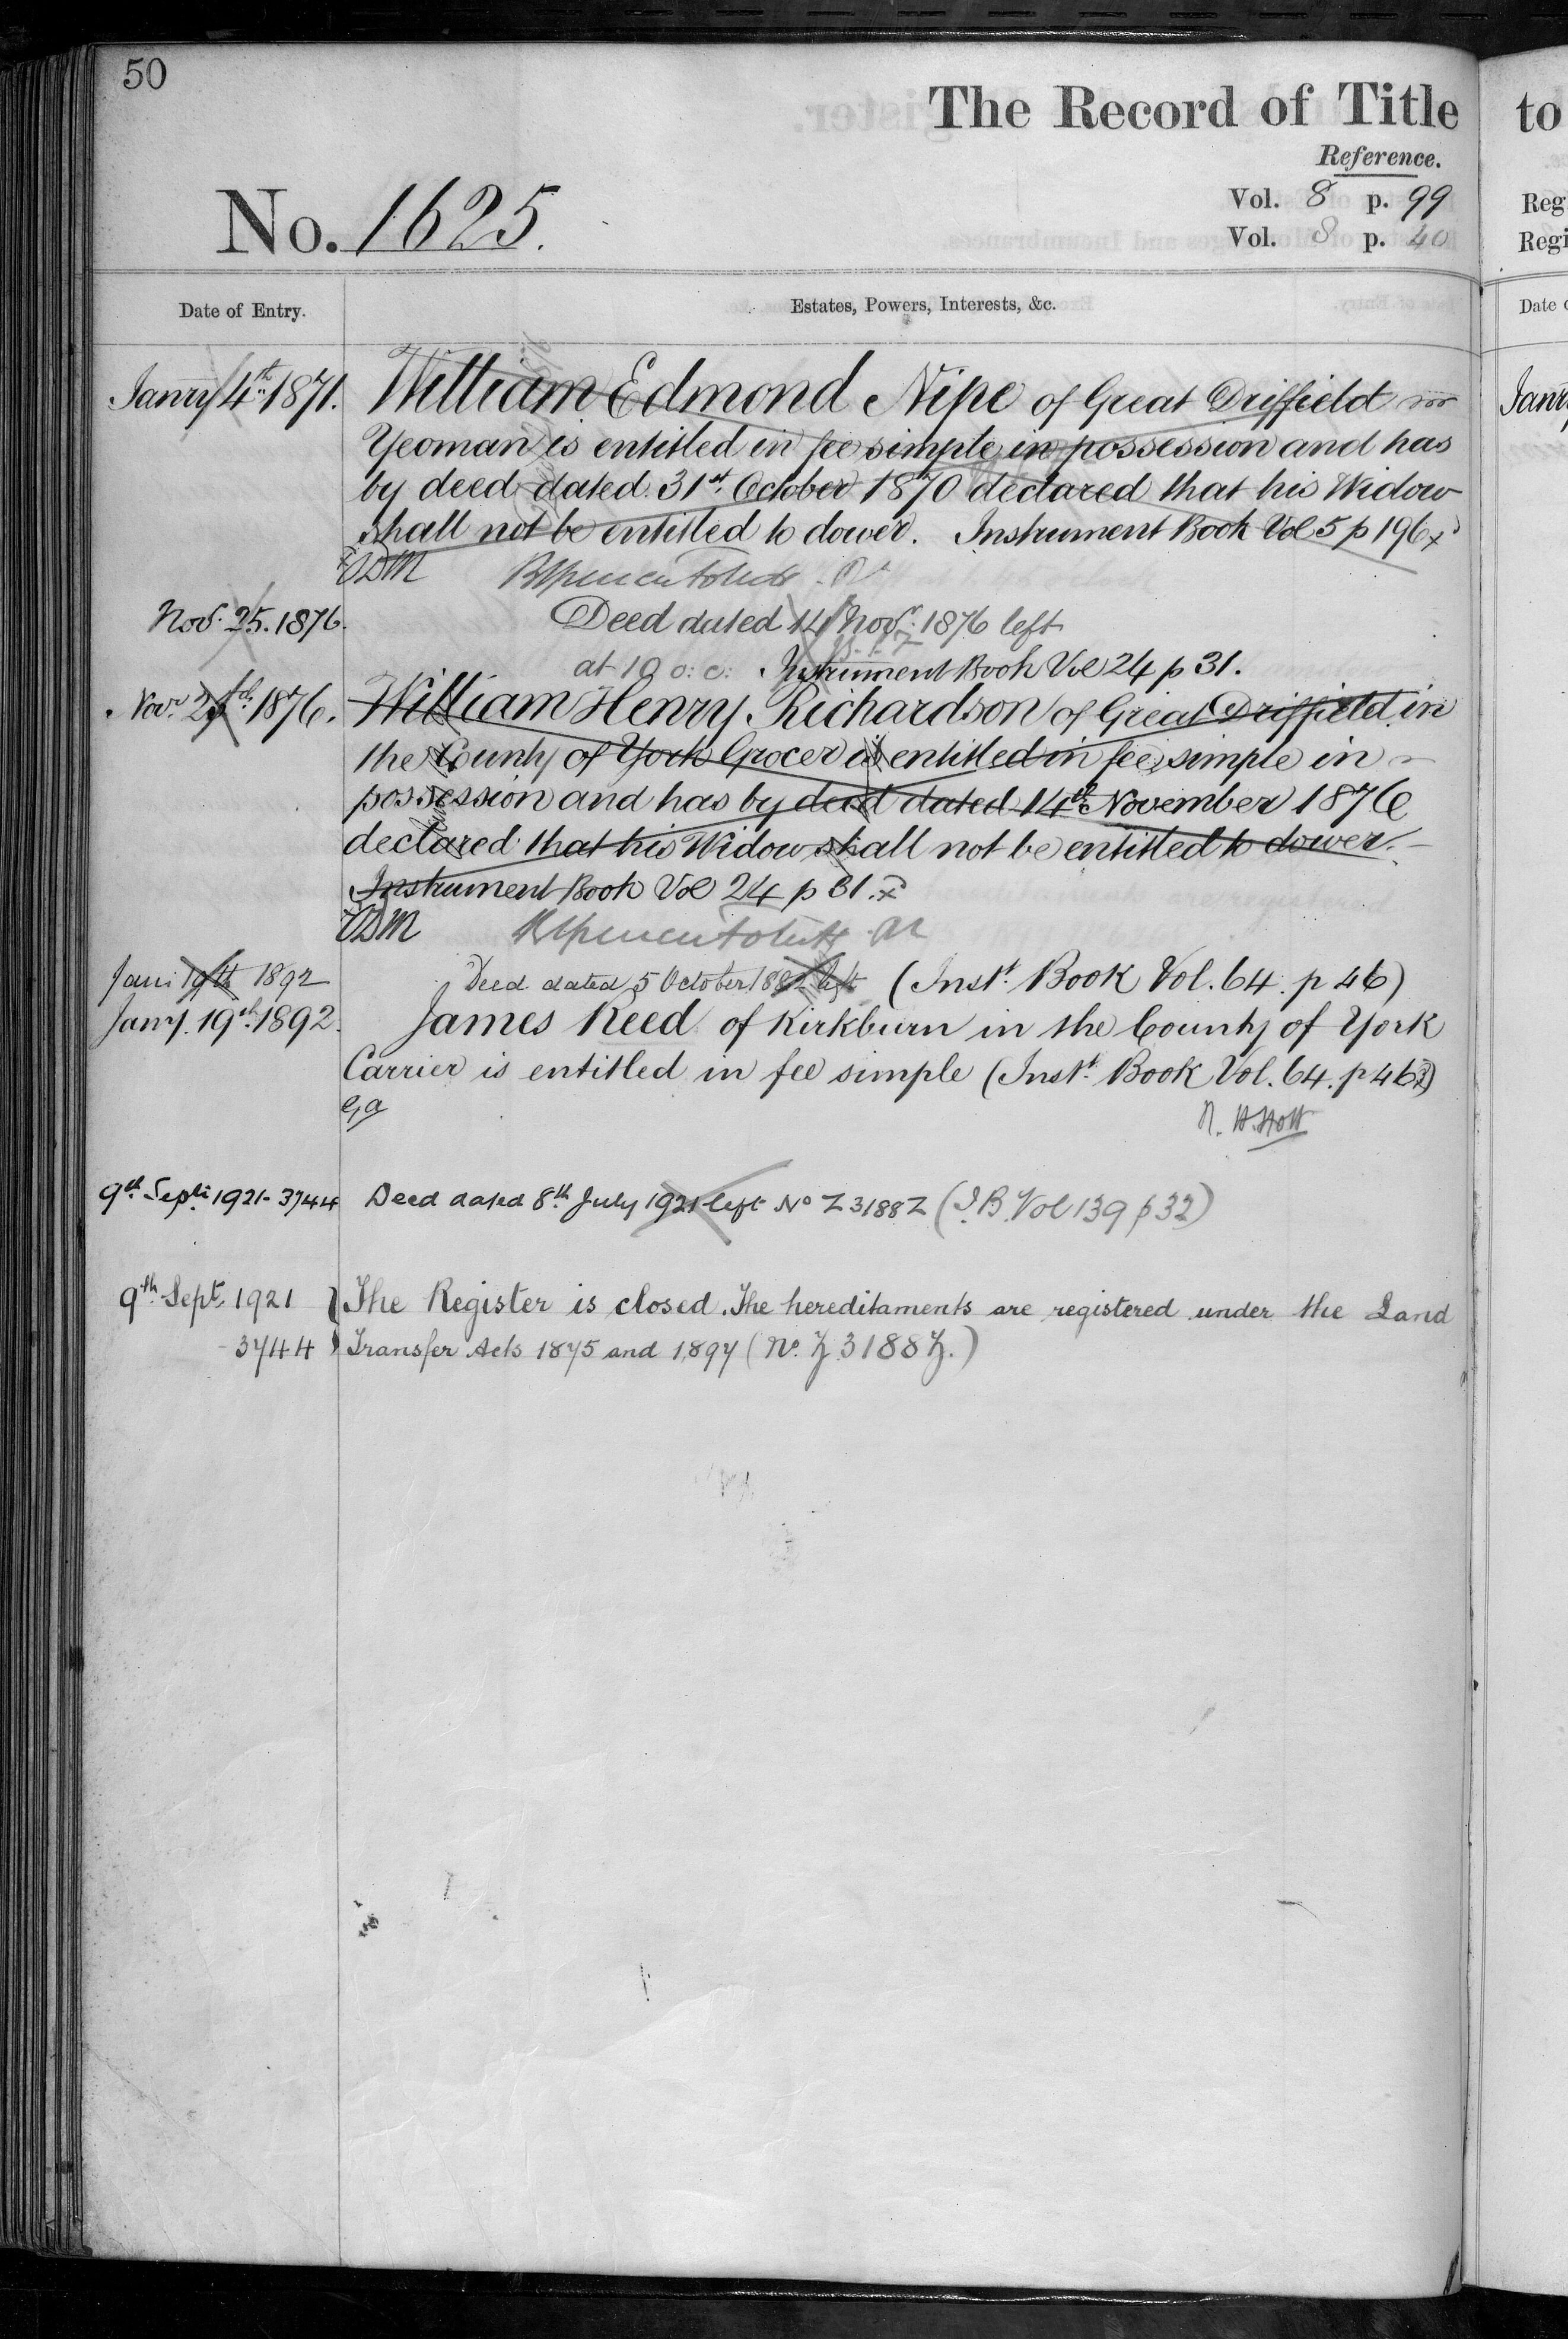 50
The Record of Title
to
Reference.
No. 1625.
Vol. 8 p. 99
Reg
Vol. 8 p. 40
Regi
Date of Entry.
Estates, Powers, Interests, &c.
Date
Janry 4th 1871. William Edmond Nipe of Great Driffield
Janr
Yeoman is entitled in fee simple in possession and has
by deed dated 31st October 1870 declared that his Widow
shall not be entitled to dower. Instrument Book Vol 5 p 196 x
Nov. 25. 1876. Deed dated 14 Novr. 1876 left
at 10 o: c: Instrument Book Vol 24 p 31.
Novr. 1876. William Henry Richardson of Great Driffield in
the County of York Grocer is entitled in fee simple in
possession and has by deed dated 14th November 1876
declared that his Widow shall not be entitled to dower.
Instrument Book Vol 24 p 31. x
Jan: 19th 1892 Deed dated 5 October 1882 left (Inst. Book Vol. 64. p 46)
Jany. 19th 1892. James Reed of Kirkburn in the County of York
Carrier is entitled in fee simple (Inst. Book Vol. 64. p 46)
9th Sept: 1921 - 3744 Deed dated 8th July 1921 left No Z 3188 Z (I.B. Vol 139 p 32)
9th Sept, 1921 } The Register is closed. The hereditaments are registered under the Land
3744 } Transfer Acts 1875 and 1897 (No. Z 3188 Z.)